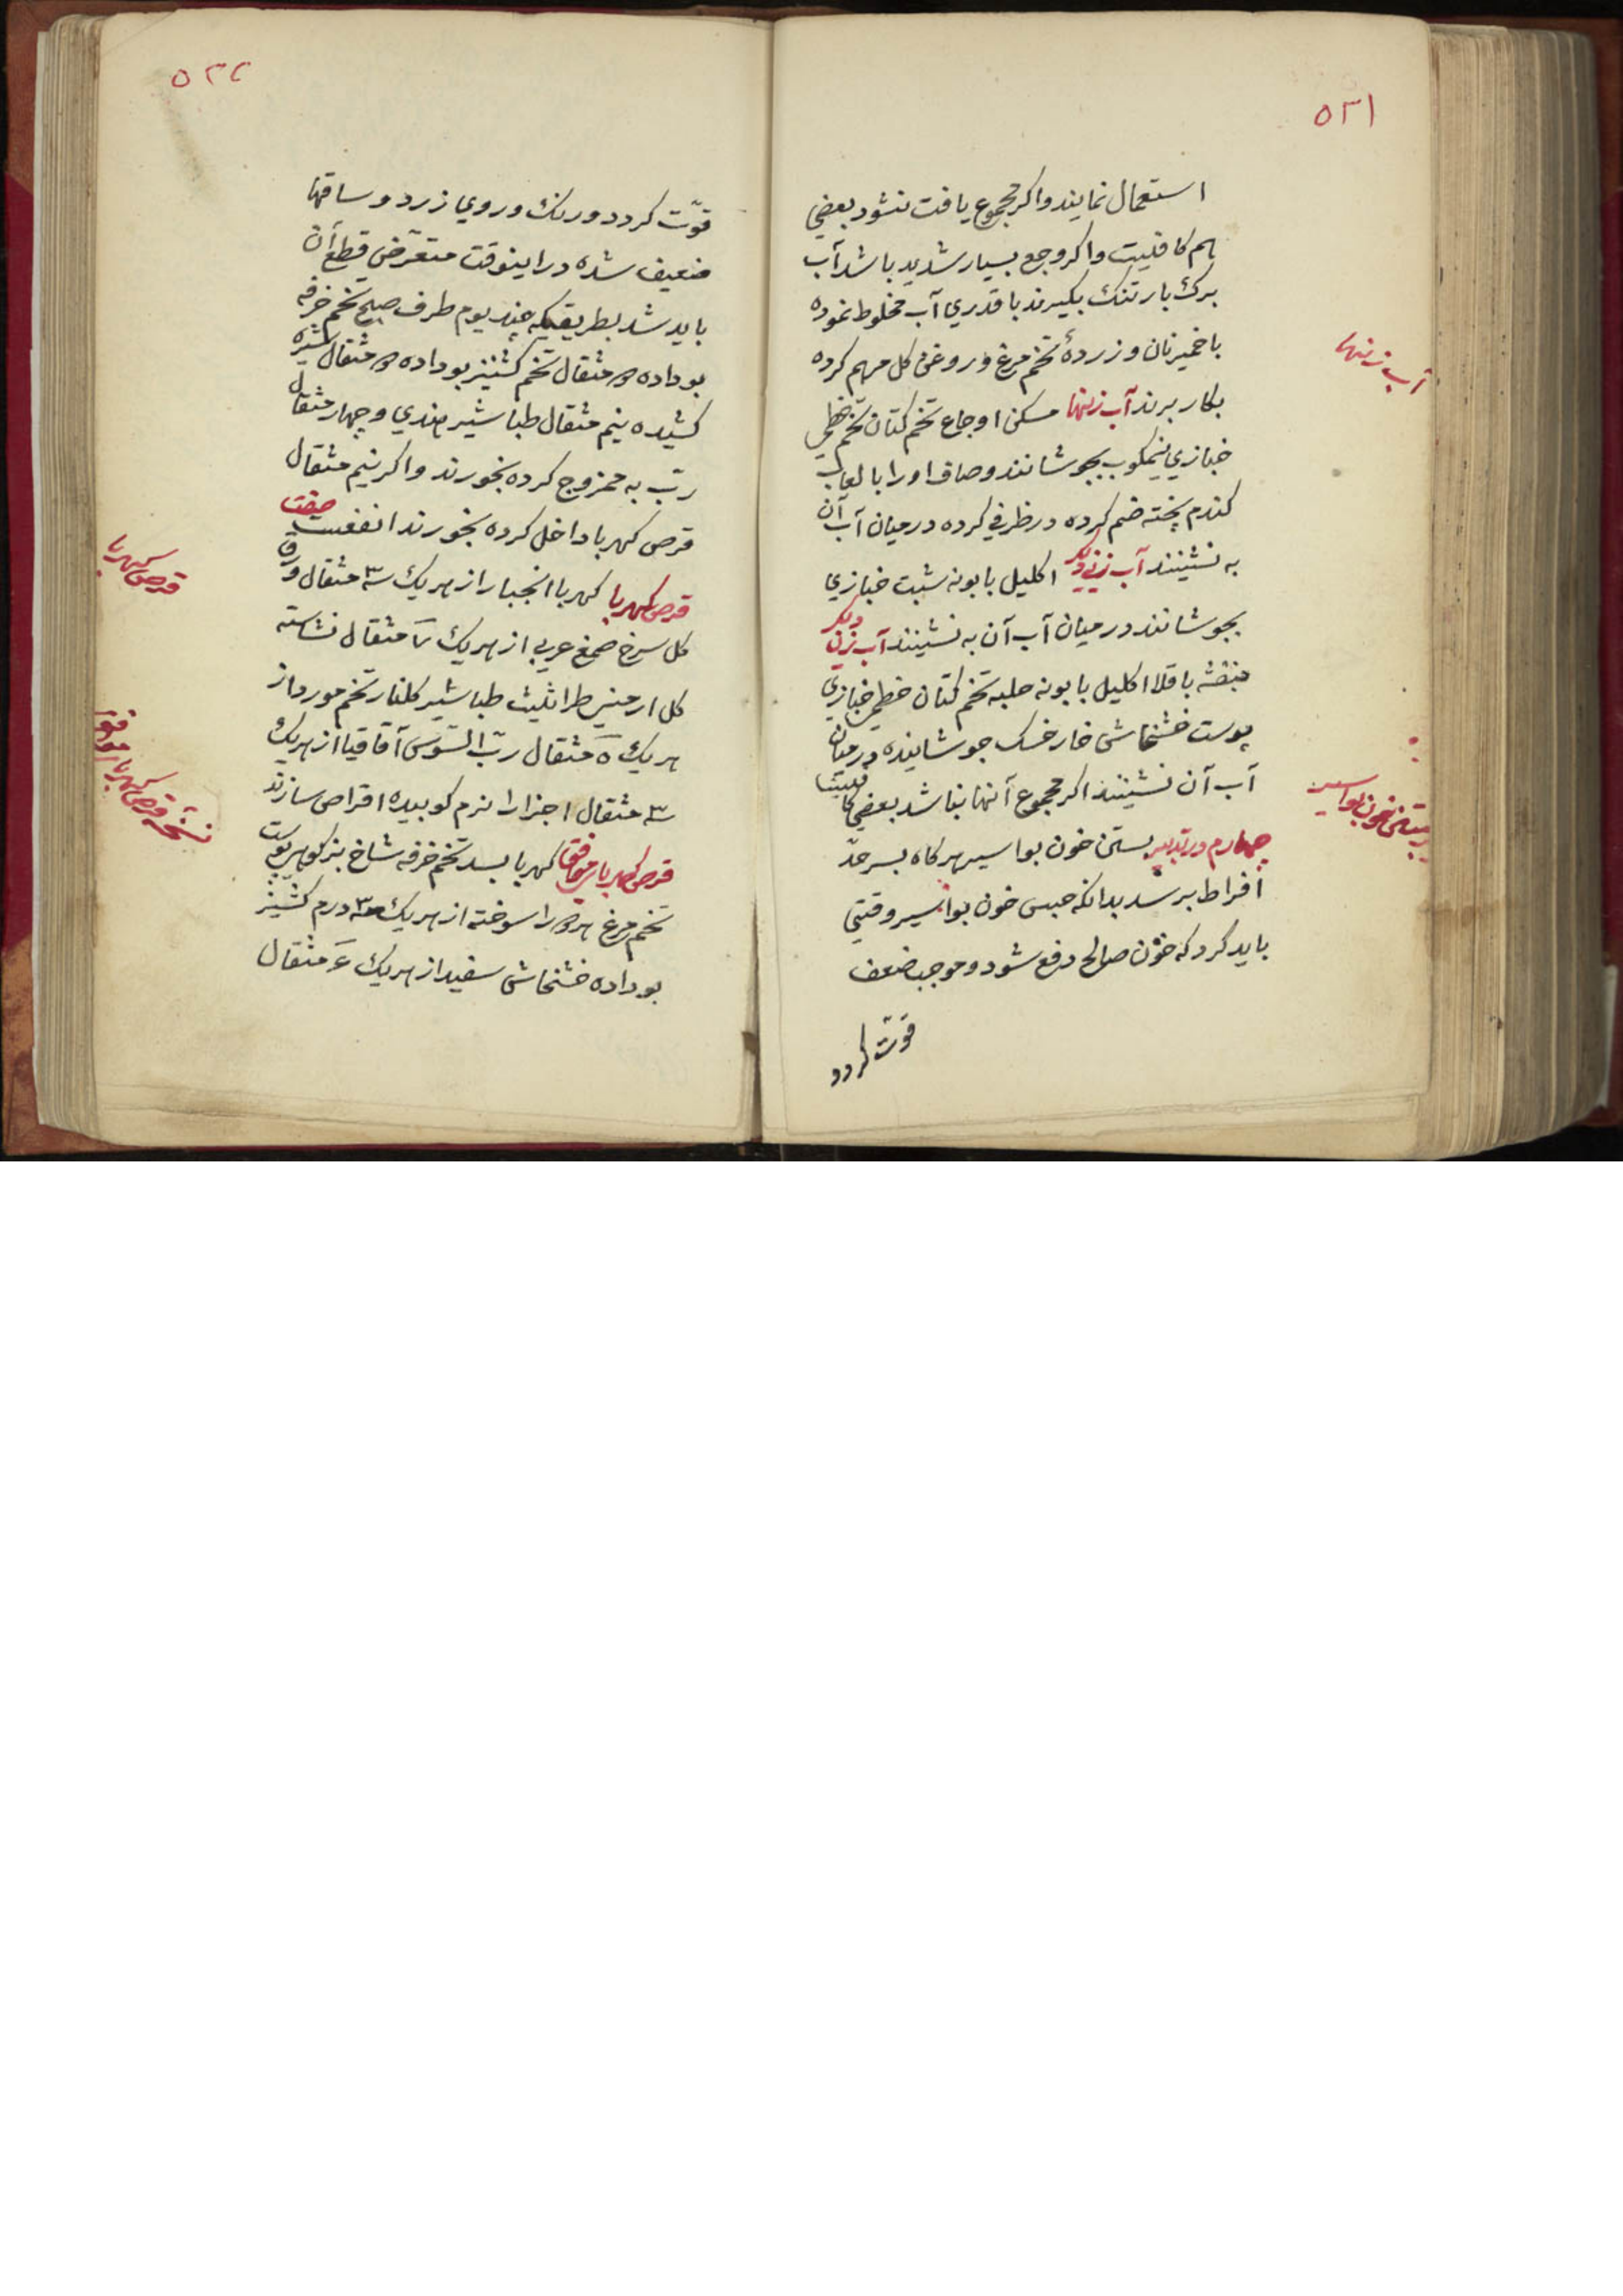 ۵۲۱
استعمال نمایند واکر مجموع یافت نشود بعضي
هم کافیست واکر وجع بسیار شدید باشد آب
برک بارتنک بکیرند با قدري آب مخلوط نموده
با خمیر نان و زردهٔ تخم مرغ و روغن کل مرهم کرده
بکار برند آب زنها مسکن اوجاع تخم کتان تخم خطمي
خبازي نیمکوب بجوشانند وصاف او را با لعاب
کندم پخته ضم کرده در ظرفي کرده در میان آب آن
به نشینند آب زني دیکر اکلیل بابونه شبت خبازي
بجوشانند در میان آب آن به نشینند آب زن دیکر
بنفشه باقلا اکلیل بابونه حلبه تخم کتان خطمي خبازي
پوست خشخاش خار خسک جوشانیده در میان
آب آن نشینند اکر مجموع آنها نباشد بعضي
چهارم در تدبیر بستن خون بواسیر هرکاه بسر حدّ
افراط برسد بدانکه حبس خون بواسیر وقتي
باید کرد که خون صالح دفع شود و موجب ضعف
قوّت کردد
آب زنها
بستن خون بواسیر
۵۲۲
قوّت کردد ورنک وروي زرد و ساقها
ضعیف شده در اینوقت متعرّض قطع آن
باید شد بطریقیکه چند یوم طرف صبح تخم خرفه
بوداده ۲ مثقال تخم کشنیز بوداده ۲ مثقال شیره
کشیده نیم مثقال طباشیر هندي و چهار مثقال
ربّ به ممزوج کرده بخورند واکر نیم مثقال
قرص کهربا داخل کرده بخورند انفعست صفت
قرص کهربا کهربا انجبار از هریک ۳ مثقال ورق
کل سرخ صمغ عربي از هریک ۷ مثقال نشاسته
کل ارمني طراثیث طباشیر کلنار تخم مورد از
هریک ۵ مثقال ربّ السّوس آقاقیا از هریک
۳ مثقال اجزا را نرم کوبیده اقراص سازند
قرص کهربا موافق کهربا بسد تخم خرفه شاخ بز کوهي پوست
تخم مرغ هر ۲ را سوخته از هریک ۳ درم کشنیز
بوداده خشخاش سفید از هریک ۴ مثقال
قرص کهربا
نسخه قرص کهربا موافق